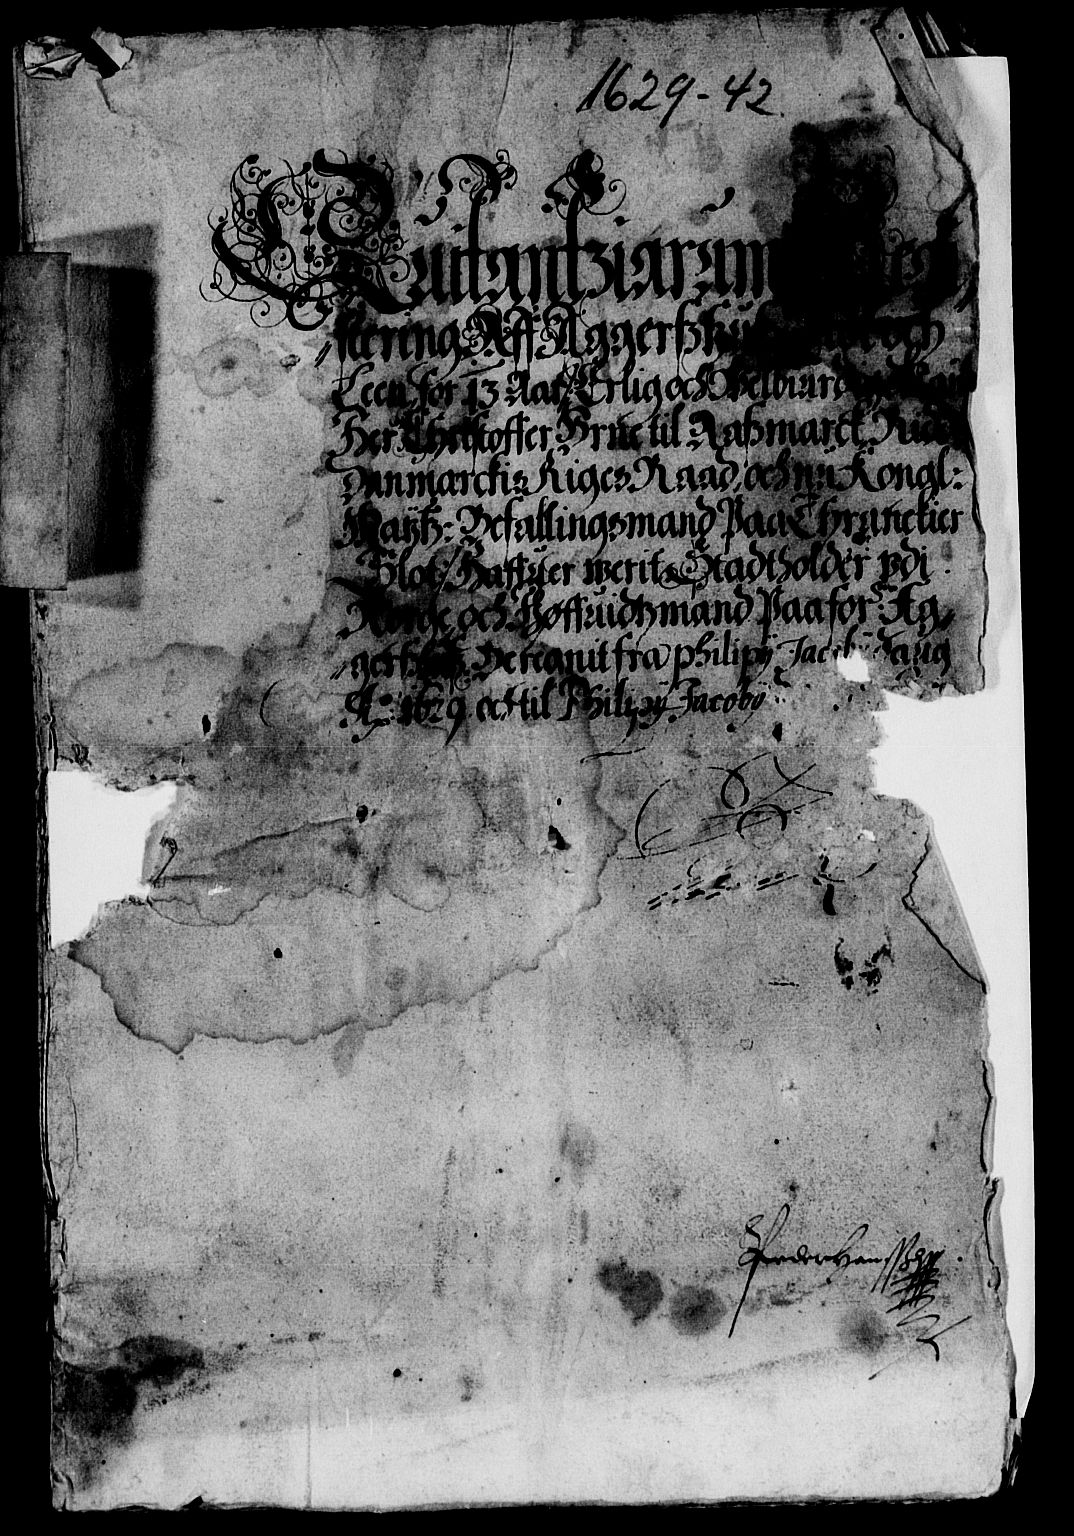 1629-42.
Quitantziarum
stering Aff Aggerszhus och
Leen for 13 Aar, Erlig och Velburdig
Her Christoffer Urne til Aaszmarck Ridd
Danmarckis Riges Raad, och nu Kongl:
Maytz: Befallingsmand Paa Thranekier
Slot, Haffuer werit Stadtholder vdi
Norge och Høffuidtzmand Paa for: Ag,
gersz Beregnit fra Philipij Jacobij Daug
Ao: 1629 och til Philipij Jacobij
Pederhanszøn